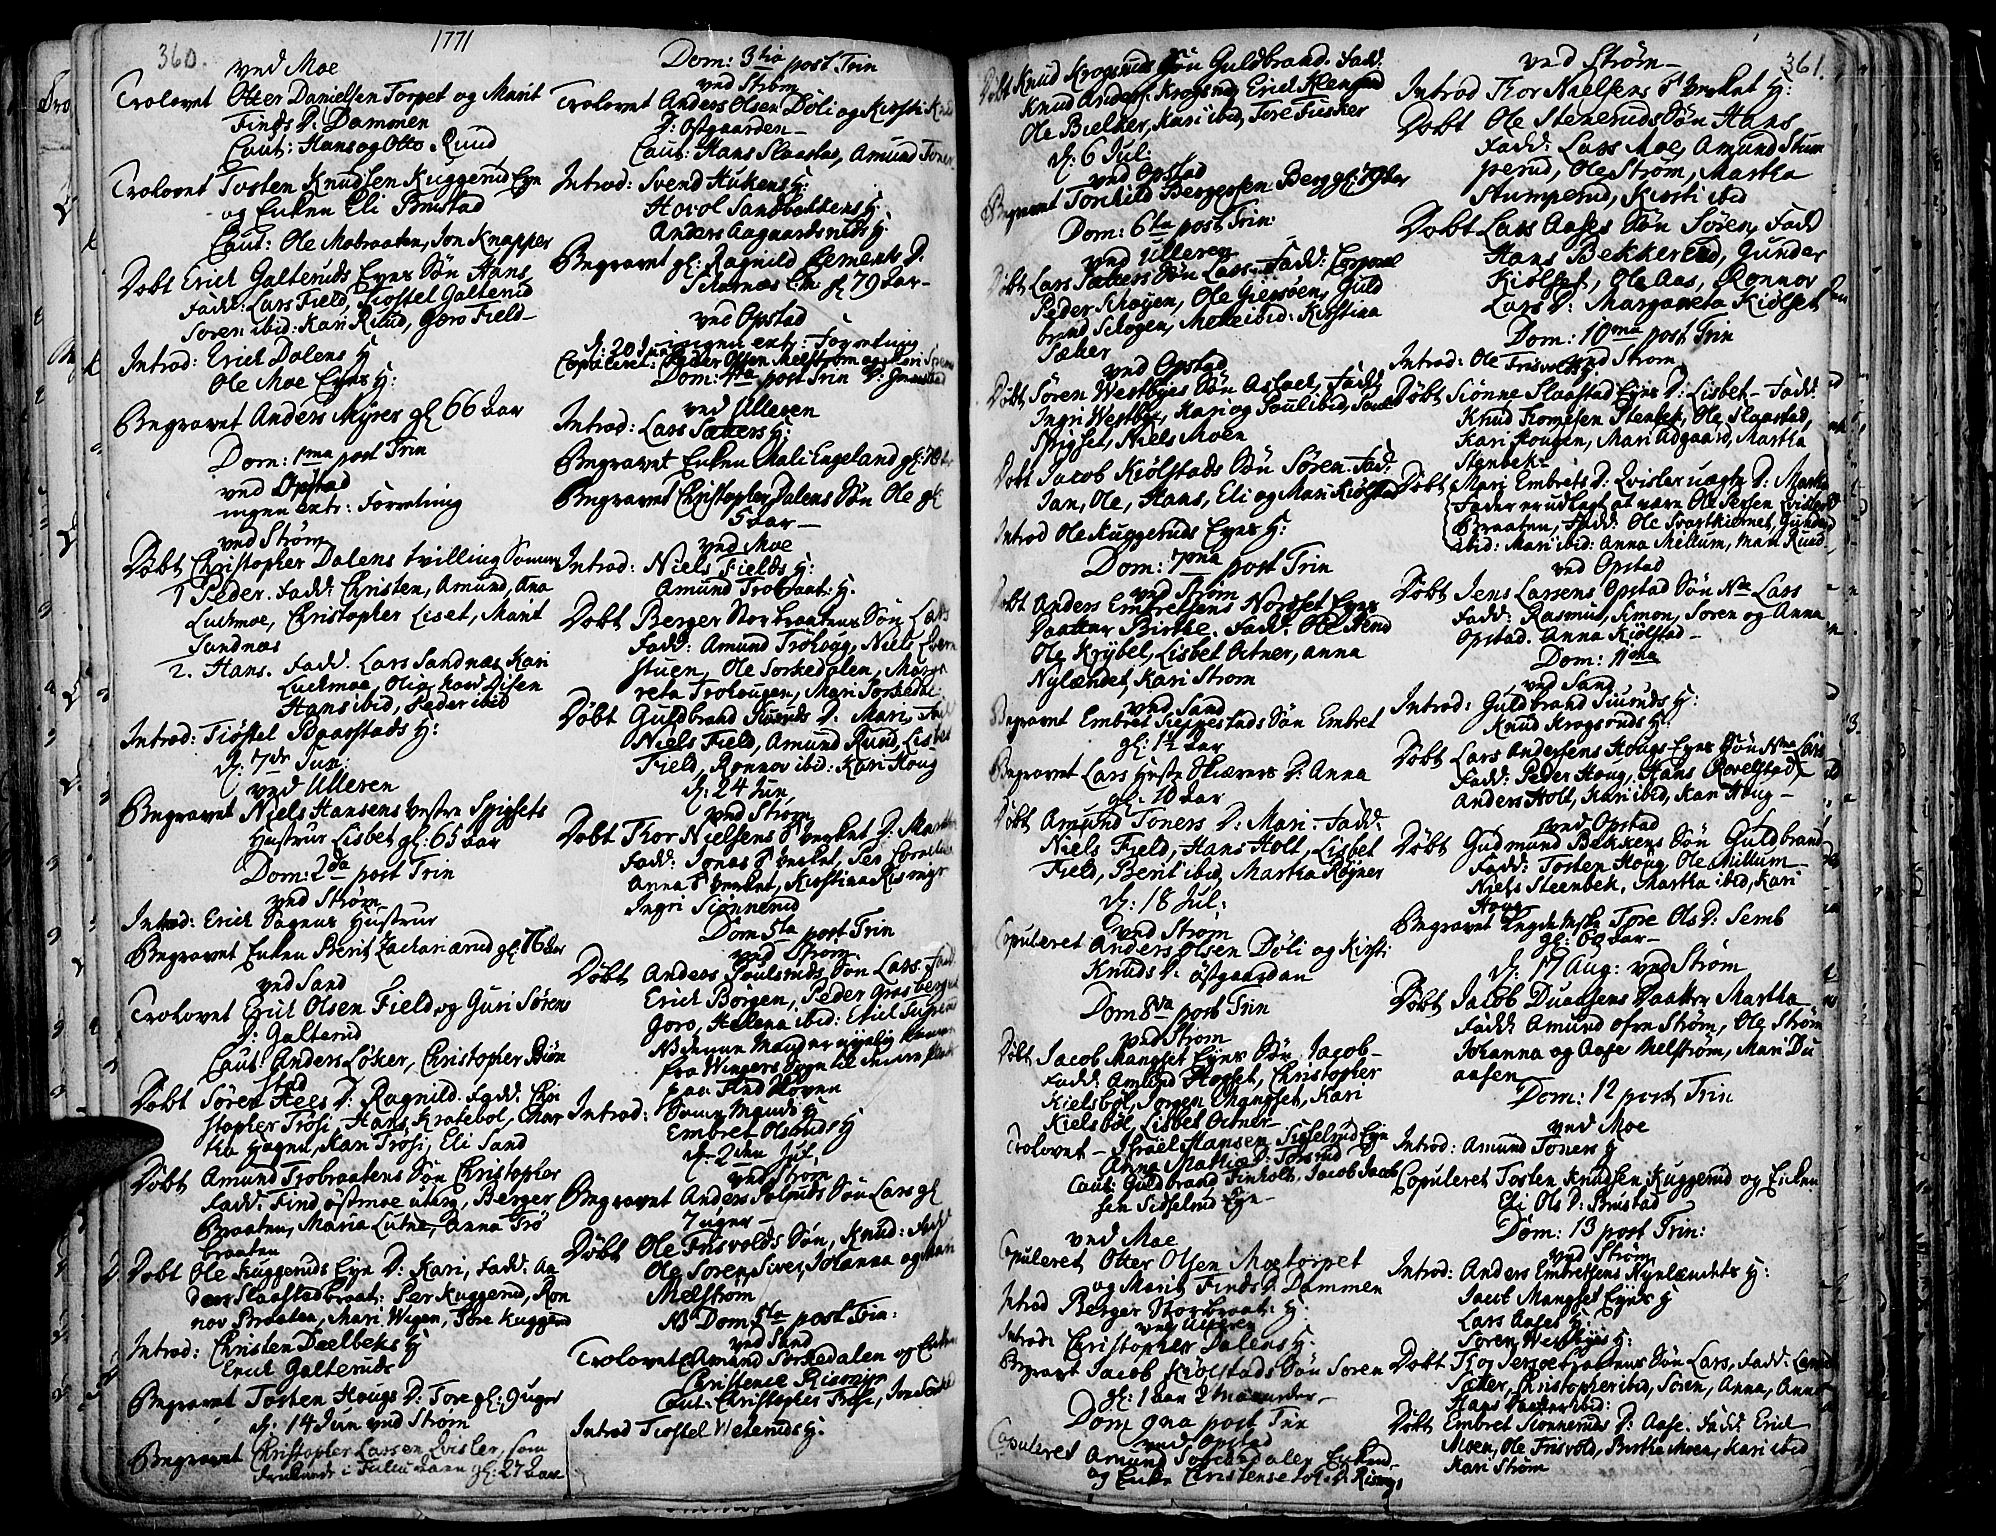 360.
1771
ved Moe
Trolovet Otter Danielsen Torpet og Marit
Finds D: Dammen
Caut: Hans og Otto Ruud
Trolovet Tosten Knudsen Kuggerud Eyn
og Enken Eli Brustad
Caut: Ole Mobraaten, Jon Knapper
Døbt Erich Galteruds Eyer Søn Hans
Fadd: Lars Field, Tiostel Galterud
Soren ibid: Kari Ruud, Goro Field
Introd: Erich Dalens H
Ole Moe Eyers H:
Begravet Anders Myrer gl 66 Aar
Dom: 1ma post Trin
ved Opstad
ingen extr: Forretning
ved Strøm
Døbt Christopher Dalens tvilling Sønner
1 Peder. Fadd: Christen, Amund, Ana
Luchmoe, Christopher Liset, Marit
Sandnæs
2. Hans. Fadd: Lars Sandnæs, Kari
Luchmoe, Olia Disen
Hans ibid, Peder ibid
Introd: Tiøstel Baastads H:
d: 7de Jun:
ved Ulleren
Begravet Niels Hansens Vestre Spigsets
Hustrue Lisbet gl: 65 aar
Dom: 2da post Trin
ved Strøm
Introd: Erich Sagens Hustrue
Begravet Enken Berit Zachariærud gl: 76 aar
ved Sand
Trolovet Erich Olsen Field og Guri Sørens
D: Galterud
Caut: Anders Løker, Christopher Biøn
stad
Døbt Søren Hees D: Ragnild. Fadd: Chri
stopher Trøsi, Hans Kratebøl, Mar
tha Hagen, Kari Trøsi, Eli Sand
Døbt Amund Trobraatens Søn Christopher
Fadd: Find Østmoe uten, Berger
Braaten, Maria Lutne, Anna Trø
braaten
Døbt Ole Kuggeruds Eyn D: Kari, Fadd: An
ders Slaastadbraat: Per Kuggerud, Ron
nov Braaten, Mari Wigen, Tore Kuggerud
Introd: Christen Dælbeks H
Erich Galteruds
Begravet Tosten Hougs D: Tore gl: 9 uger
d: 14 Jun ved Strøm
Begravet Christopher Larsen Qvisler, som
i gl: 27 Aar
Dom: 3tia post Trin
ved Strøm
Trolovet Anders Olsen Døli og Kirsti
D: Østgaarden
Caut: Hans Slaastad, Amund Toner
Introd: Svend Hukens H:
Hovol Sandbakkens H:
Anders Aagaards H:
Begravet gl: Ragnild Clements D.
Skarnæs gl 79 Aar
ved Opstad
ingen extr: Forretning
d: 20 Jun
Copuleret: Peder Olsen Melstrøm og
Dom: 4ta post Trin
ved Ulleren
Introd: Lars Sækers H:
Begravet Enken Mali Engeland gl: 78
Begravet Christopher Dalens Søn Ole gl:
5 aar
ved Moe
Introd: Niels Fields H:
Amund Trobraat: H:
Døbt Berger Storbraatens Søn Lars
Fadd: Amund Trøhoug, Niels
stuen, Ole Sorkedalen, Marga
reta Trohougen, Mari Sorkedal
Døbt Guldbrand D: Mari, Fadd
Niels Field, Amund Ruud, Lisbet
Field, Ronnov ibid: Kari Houg
d: 24 Jun
ved Strøm
Døbt Thor Nielsens D: Martha
Fadd: Jonas
Anna
Ingri Siønnerud
Dom 5ta post Trin
ved Strøm
Døbt Anders Poulsruds Søn Lars. Fadd:
Erich Børgen, Peder Grasberget
Goro, Helena ibid: Erich
NB denne Mand er nyelig kommen
fra Wingers Sogn til
paa Find Skoven
Introd: Samme Mands H
Embret Olsruds H
d: 2den Jul:
ved Strøm
Begravet Anders Søn Lars gl:
7 uger
Døbt Ole Frisvolds Søn, Knud: Fadd
Ole Soren, Siver, Johanna og Mari
Melstrøm
NB Dom 5ta post Trin:
ved Sand
Trolovet Amund Sorkedalen og Enken
Christence Risonyr
Caut: Christopher Trøse, Jon
Introd Tiostel Weteruds H:
Døbt Knud Kragsruds Søn Guldbrand. Fadd:
Knud Kragsrud, Erich
Ole Bielker, Kari ibid, Tore Fiusker
d: 6 Jul:
ved Opstad
Begravet Torchild Bergersen Berg gl: 79 Aar
Dom: 6ta post Trin:
ved Ulleren
Døbt Lars Sækers Søn Lars. Fadd: Corporal
Peder Schøyen, Ole Giersøen, Guld
brand Schøgen, Mette ibid: Kirstina
Sæker
ved Opstad
Døbt Søren Westbyes Søn Fadd:
Ingri Westbye, Kari og Poul ibid,
Spigset, Niels Moen
Døbt Jacob Kiølstads Søn Søren. Fadd:
Jan, Ole, Hans, Eli og Mari Kiølstad
Introd Ole Kuggeruds Eyers H:
Dom: 7ma post Trin
ved Strøm
Døbt Anders Embretsens Nordset Eyers
Daatter Birthe. Fadd: Ole
Ole Krybel, Lisbet Ortner, Anna
Nylændet, Kari Strøm
ved Sand
Begravet Embret Søn Embret
gl: 1½ Aar
Begravet Lars D: Anna
gl: 10 Aar
Døbt Amund Toners D: Mari. Fadd:
Niels Field, Hans Holt, Lisbet
Field, Berit ibid, Martha Røgner
d: 18 Jul:
ved Strøm
Copuleret Anders Olsen Døli og Kirsti
Knuds D: Østgaarden
Dom 8va post Trin
ved Strøm
Døbt Jacob Mangset Eyers Søn Jacob
Fadd: Amund Christopher
Kielsbøl, Jorgen Mangset, Kari
Kielsbøl, Lisbet Ortner
Trolovet Israel Hansen Sidselrud Eyn
Anna Mathiæ D:
Caut: Guldbrand Finholt, Jacob Jacob
sen Sidselrud Eyn
ved Moe
Copuleret Otter Olsen Moetorpet
og Marit Finds D: Dammen
Introd Berger Storbraat: H:
ved Ulleren
Introd: Christopher Dalens H:
Begravet Jacob Kiølstads Søn Soren
gl: 1 aar 2 maaneder
Dom 9na post Trin
ved Opstad
Copuleret Amund Sorkedalen Enkem
og Enke Christense
361.
ved Strøm
Introd Thor Nielsens H:
Døbt Ole Steneruds Søn Hans
Fadd: Lars Moe, Amund Stum
perud, Ole Strøm, Martha
Stumperud, Kirsti ibid
Døbt Lars Aases Søn Søren. Fadd
Hans Bekkerud, Gunder
Kiølset, Ole Aas, Ronnov
Lars D: Margareta Kiølset
Dom: 10ma post Trin
ved Strøm
Introd: Ole Frisvolds H:
Døbt Siønne Slaastad Eyers D: Lisbet. Fadd:
Knud Tomesen Stenbek, Ole Slaastad,
Kari Hougen, Mari Adgaard, Martha
Stenbek
Døbt Mari Embrets D: Qvisler uægte D: Martha
Fader er udlagt at være Ole Persen Qvisler
Braaten, Fadd: Ole Svartkiernet, Gunder
ibid: Mari ibid: Anna Mellum, Mari Ruud
ved Opstad
Døbt Jens Larsens Opstad Søn Lars
Fadd: Rasmus, Simon, Soren og Anna
Opstad. Anna Kiolstad
Dom: 11ma
ved Sand
Introd: Guldbrand H:
Knud Kragsruds H:
Døbt Lars Andersens Hougs Eyers Søn Lars
Fadd: Peder Houg, Hans
Anders Holt, Kari ibid, Kari Houg
ved Opstad
Døbt Gudmund Bækkens Søn Guldbrand
Fadd: Tosten Houg, Ole Mellum
Niels Steenbek, Martha ibid, Kari
Houg
Begravet Tore Ols D: Semb
gl: aar
d: 17 Aug: ved Strøm
Døbt Jacob Duaasens Daatter Martha
Fadd: Amund Strøm, Ole Strøm
Johanna og Aase Melstrøm, Mari Du
aasen
Dom: 12 post Trin
ved Moe
Introd: Amund Toners H
Copuleret Tosten Knudsen Kuggerud og Enken
Eli Ols D: Brustad
Dom: 13 post Trin:
ved Strøm
Introd: Anders Embretsens Nynlændets H:
Jacob Mangset Eyers H
Lars Aases H:
Soren Westbyes H:
Døbt Thor Søn Lars, Fadd:
Sæter, Christopher ibid, Soren, Anna, Anne
Hans ibid:
Døbt Embret Sionneruds D: Aase. Fadd: Erich
Moen, Ole Frisvold, Birthe Moen, Kari ibid
Kari Strøm